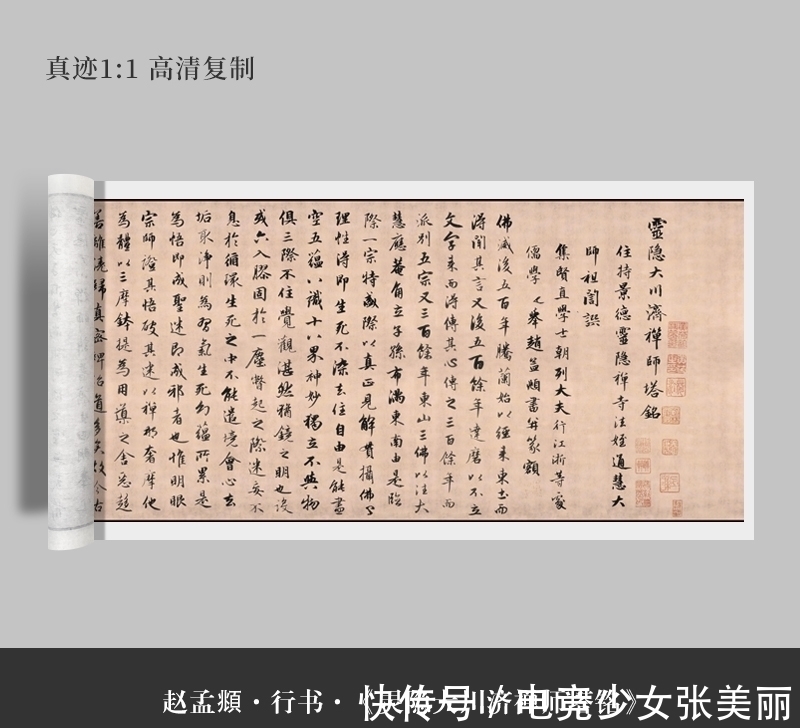 真迹1:1 高清复制
靈隐大川濟禪師塔銘
住持景德靈隐禪寺法姪通慧大
師祖訚譔
集賢直學士朝列大夫行江浙等處
儒學
舉趙孟頫書并篆額
佛滅後五百年騰蘭始以經來東土而
得聞其言又後五百餘年達磨以不立
文字来而得傳其心傳之三百餘年而
派别五宗又三百餘年東山三佛以法大
慧應菴角立子孫布滿東南由是臨
際一宗特盛際以真正見解貫攝佛
理性得即生死不染去住自由是能盡
空五蘊以識十八界神妙獨立不與物
俱三際不住覺觀湛然猶鏡之明也没
或六入膠固於一塵瞥起之際迷妄不
息於彌深生死之中不能遣境會心去
垢取淨則為習氣生死幻蘊所累是
為悟即成聖迷即成邪者也惟明眼
宗師證其悟破其迷以禪那奢摩他
為體以三摩鉢提為用導之含忍超
赵孟頫·行书·《灵隐大川济禅师塔铭》
快传号/电竞少女张美丽